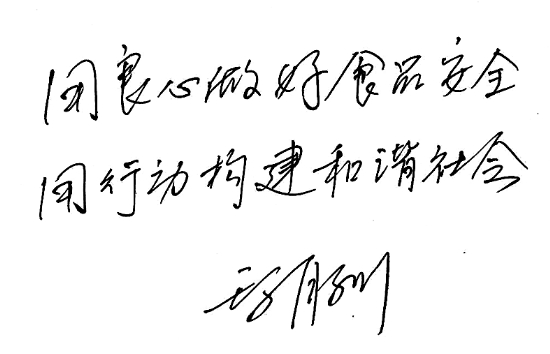 用良心做好食品安全
用行动构建和谐社会